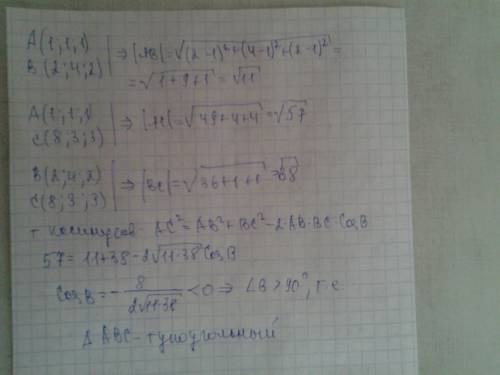 A(1;1;1)
B(2;4;2) | ⇒ |AB|=√((2-1)²+(4-1)²+(2-1)²)=
=√(1+9+1)=√11
A(1;1;1)
C(8;3;3) | ⇒ |AC|=√(49+4+4)=√57
B(2;4;2)
C(8;3;3) | ⇒ |BC|=√(36+1+1)=√38
т косинусов. AC²=AB²+BC²-2·AB·BC CosB
57=11+38-2√(11·38) CosB
CosB=-8/(2√(11·38))<0 ⇒ ∠B>90°, т.е.
Δ ABC-тупоугольный